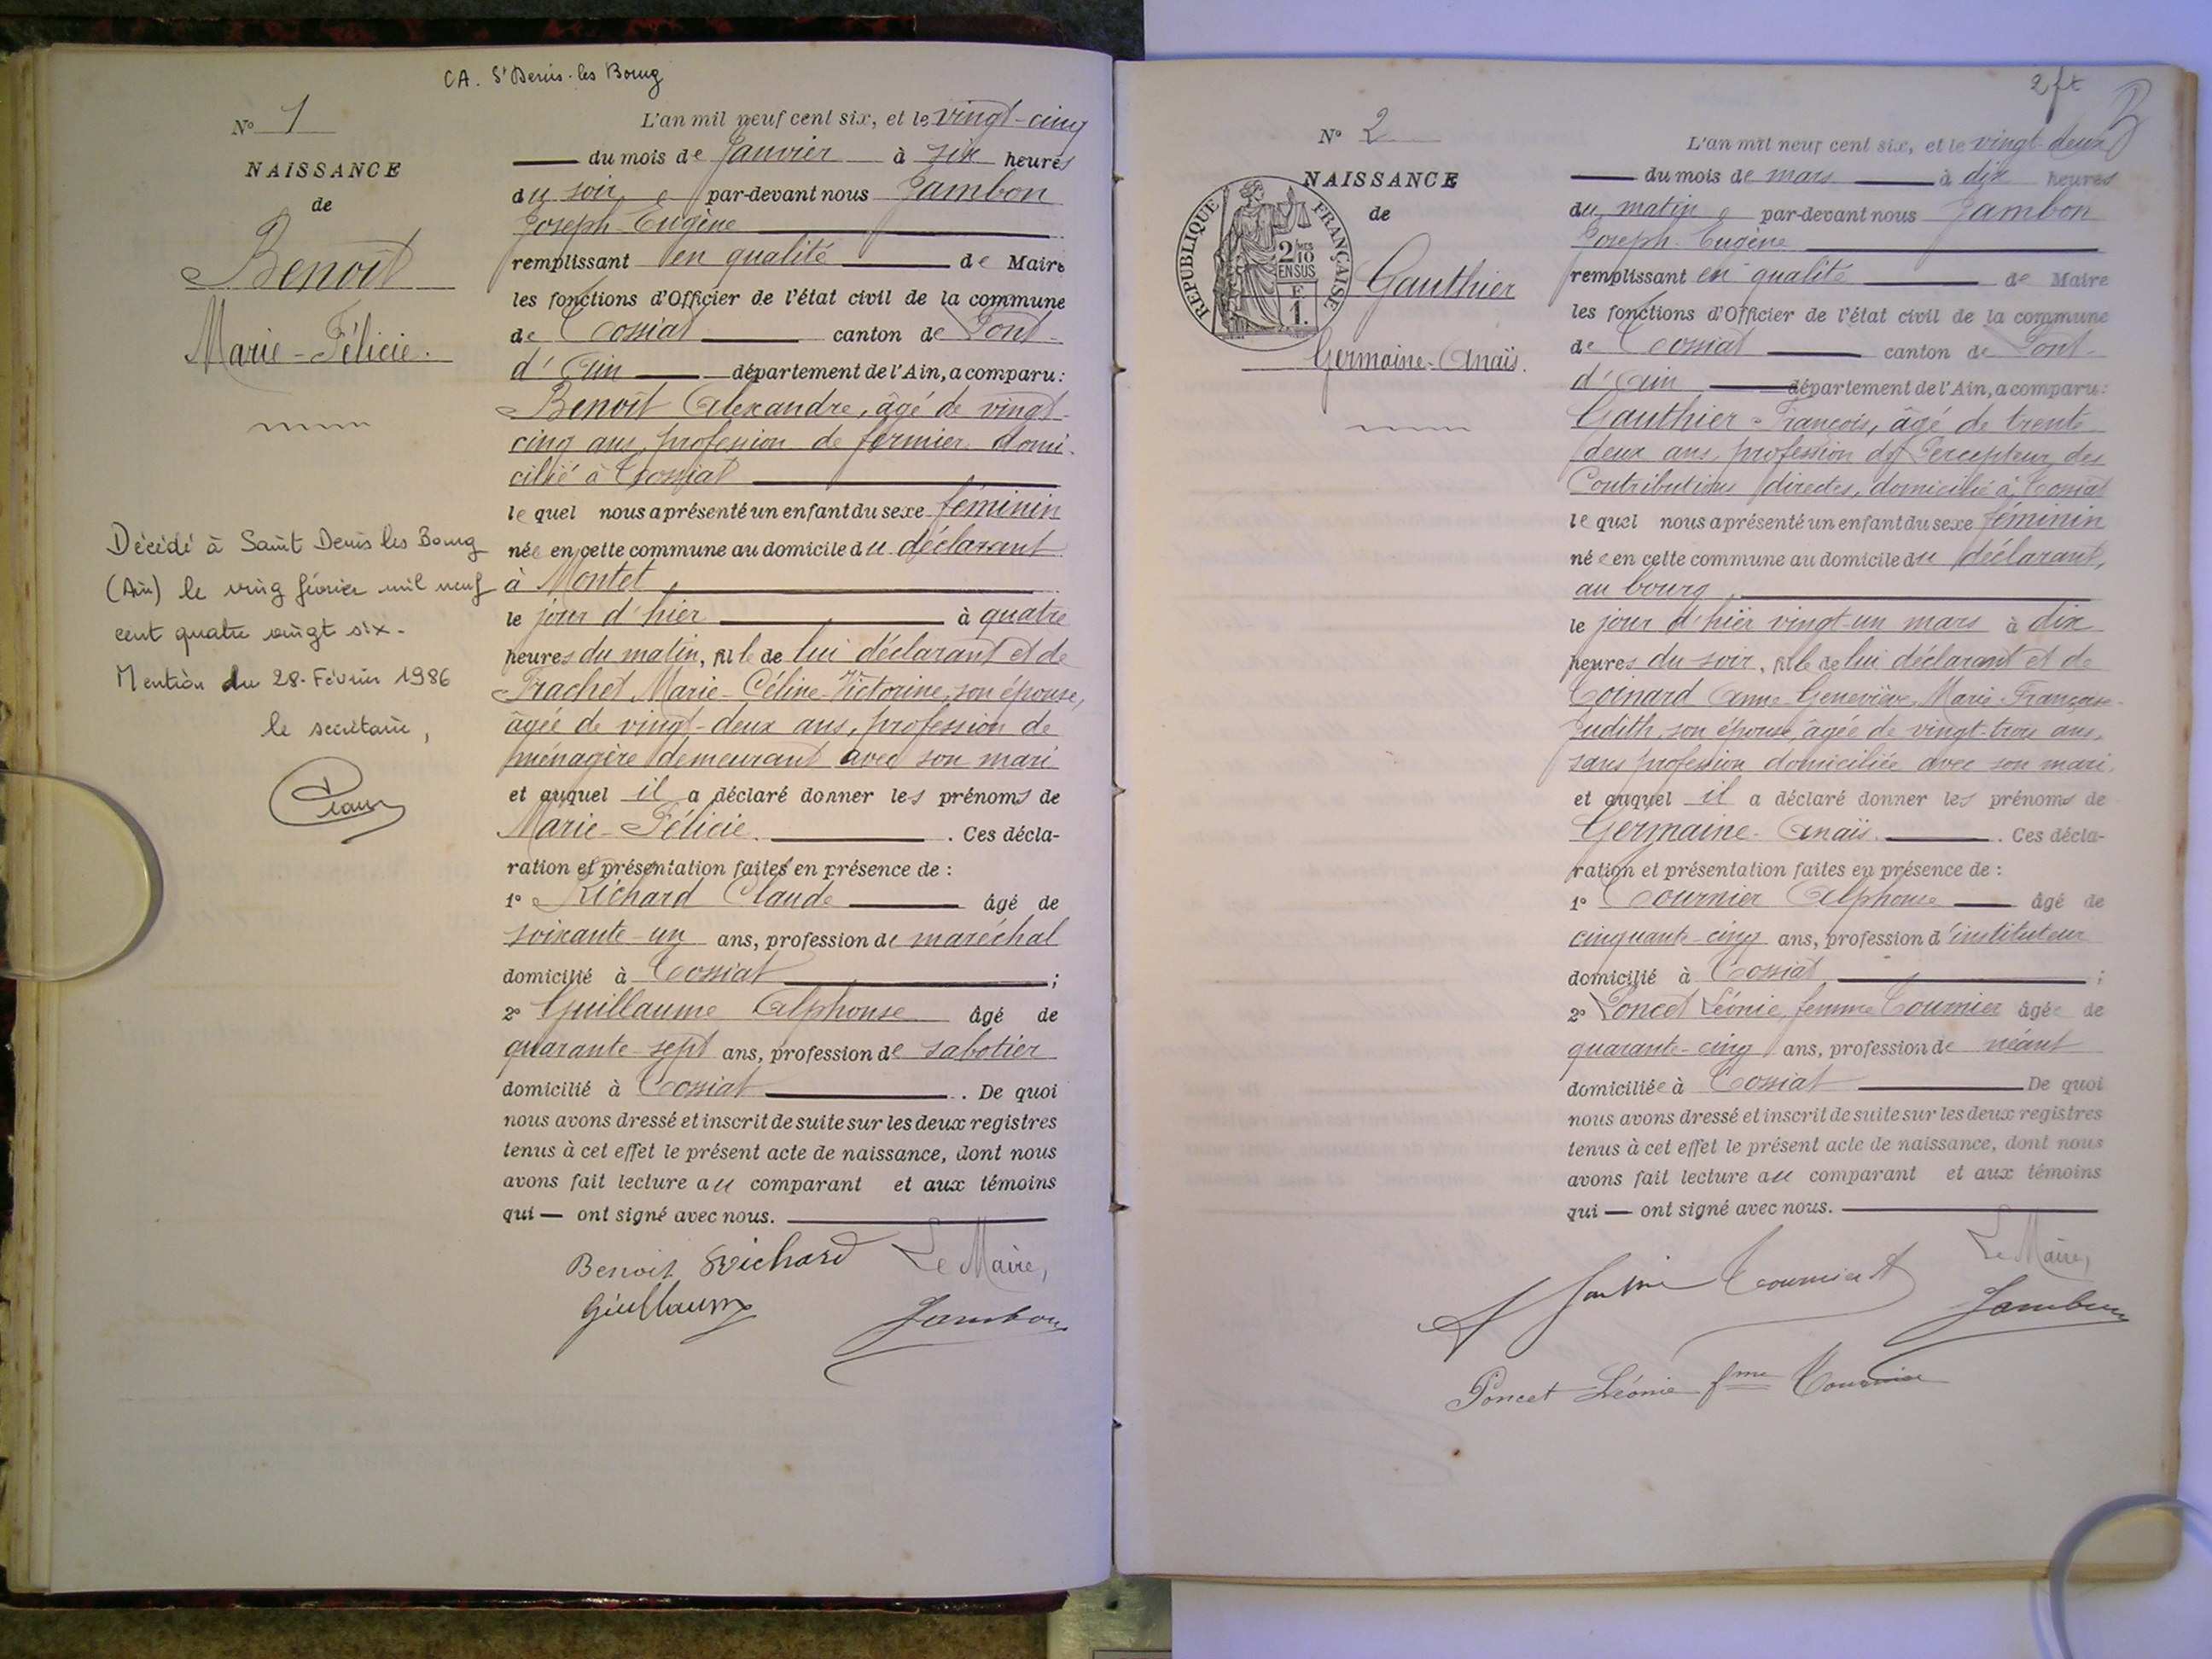 CA. St Denis-les Bourg
N° 1
NAISSANCE
de
Benoît
Marie-Félicie.
Décédé à Saint Denis les Bourg
(Ain) le vingt février mil neuf
cent quatre vingt six.
Mention du 28. Février 1986
le secrétaire,
L'an mil neuf cent six, et le vingt-cinq
du mois de Janvier à six heures
du soir, par-devant nous Jambon
Joseph Eugène
remplissant en qualité de Maire
les fonctions d'Officier de l'état civil de la commune
de Tossiat canton de Pont-
d'Ain département de l'Ain, a comparu:
Benoît Alexandre, âgé de vingt-
cinq ans, profession de fermier domi-
cilié à Tossiat
lequel nous a présenté un enfant du sexe féminin
née en cette commune au domicile du déclarant
à Montet
le jour d'hier à quatre
heures du matin, fille de lui déclarant et de
Frachet Marie-Céline-Victorine, son épouse,
âgée de vingt-deux ans, profession de
ménagère demeurant avec son mari
et auquel il a déclaré donner les prénoms de
Marie-Félicie. Ces décla-
ration et présentation faites en présence de :
1° Richard Claude âgé de
soixante-un ans, profession de maréchal
domicilié à Tossiat ;
2° Guillaume Alphonse âgé de
quarante-sept ans, profession de sabotier
domicilié à Tossiat . De quoi
nous avons dressé et inscrit de suite sur les deux registres
tenus à cet effet le présent acte de naissance, dont nous
avons fait lecture au comparant et aux témoins
qui — ont signé avec nous.
Benoit Richard Le Maire,
Guillaume Jambon
2 ft
N° 2
NAISSANCE
de
REPUBLIQUE FRANÇAISE
2/10
EN SUS
F
1.
Gauthier
Germaine-Anaïs.
L'an mil neuf cent six, et le vingt-deux
du mois de mars à dix heures
du matin, par-devant nous Jambon
Joseph-Eugène
remplissant en qualité de Maire
les fonctions d'Officier de l'état civil de la commune
de Tossiat canton de Pont-
d'Ain département de l'Ain, a comparu:
Gauthier François, âgé de trente-
deux ans, profession de Percepteur des
Contributions directes, domicilié à Tossiat
lequel nous a présenté un enfant du sexe féminin
née en cette commune au domicile du déclarant,
au bourg,
le jour d'hier vingt-un mars à dix
heures du soir, fille de lui déclarant et de
Coinard Anne-Geneviève-Marie-Françoise-
Judith, son épouse, âgée de vingt-trois ans,
sans profession domiciliée avec son mari,
et auquel il a déclaré donner les prénoms de
Germaine-Anaïs. Ces décla-
ration et présentation faites en présence de :
1° Tournier Alphonse âgé de
cinquante-cinq ans, profession d'instituteur
domicilié à Tossiat ;
2° Poncet Léonie, femme Tournier âgée de
quarante-cinq ans, profession de néant
domiciliée à Tossiat De quoi
nous avons dressé et inscrit de suite sur les deux registres
tenus à cet effet le présent acte de naissance, dont nous
avons fait lecture au comparant et aux témoins
qui — ont signé avec nous.
Le Maire,
Tournier A Jambon
Poncet Léonie fme Tournier